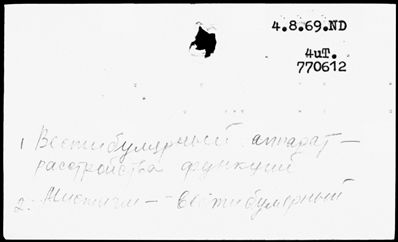 4.8.69.ND
4uT.
770612
1 Вестибулярный аппарат —
расстройства функций
2. Нистагм — вестибулярный